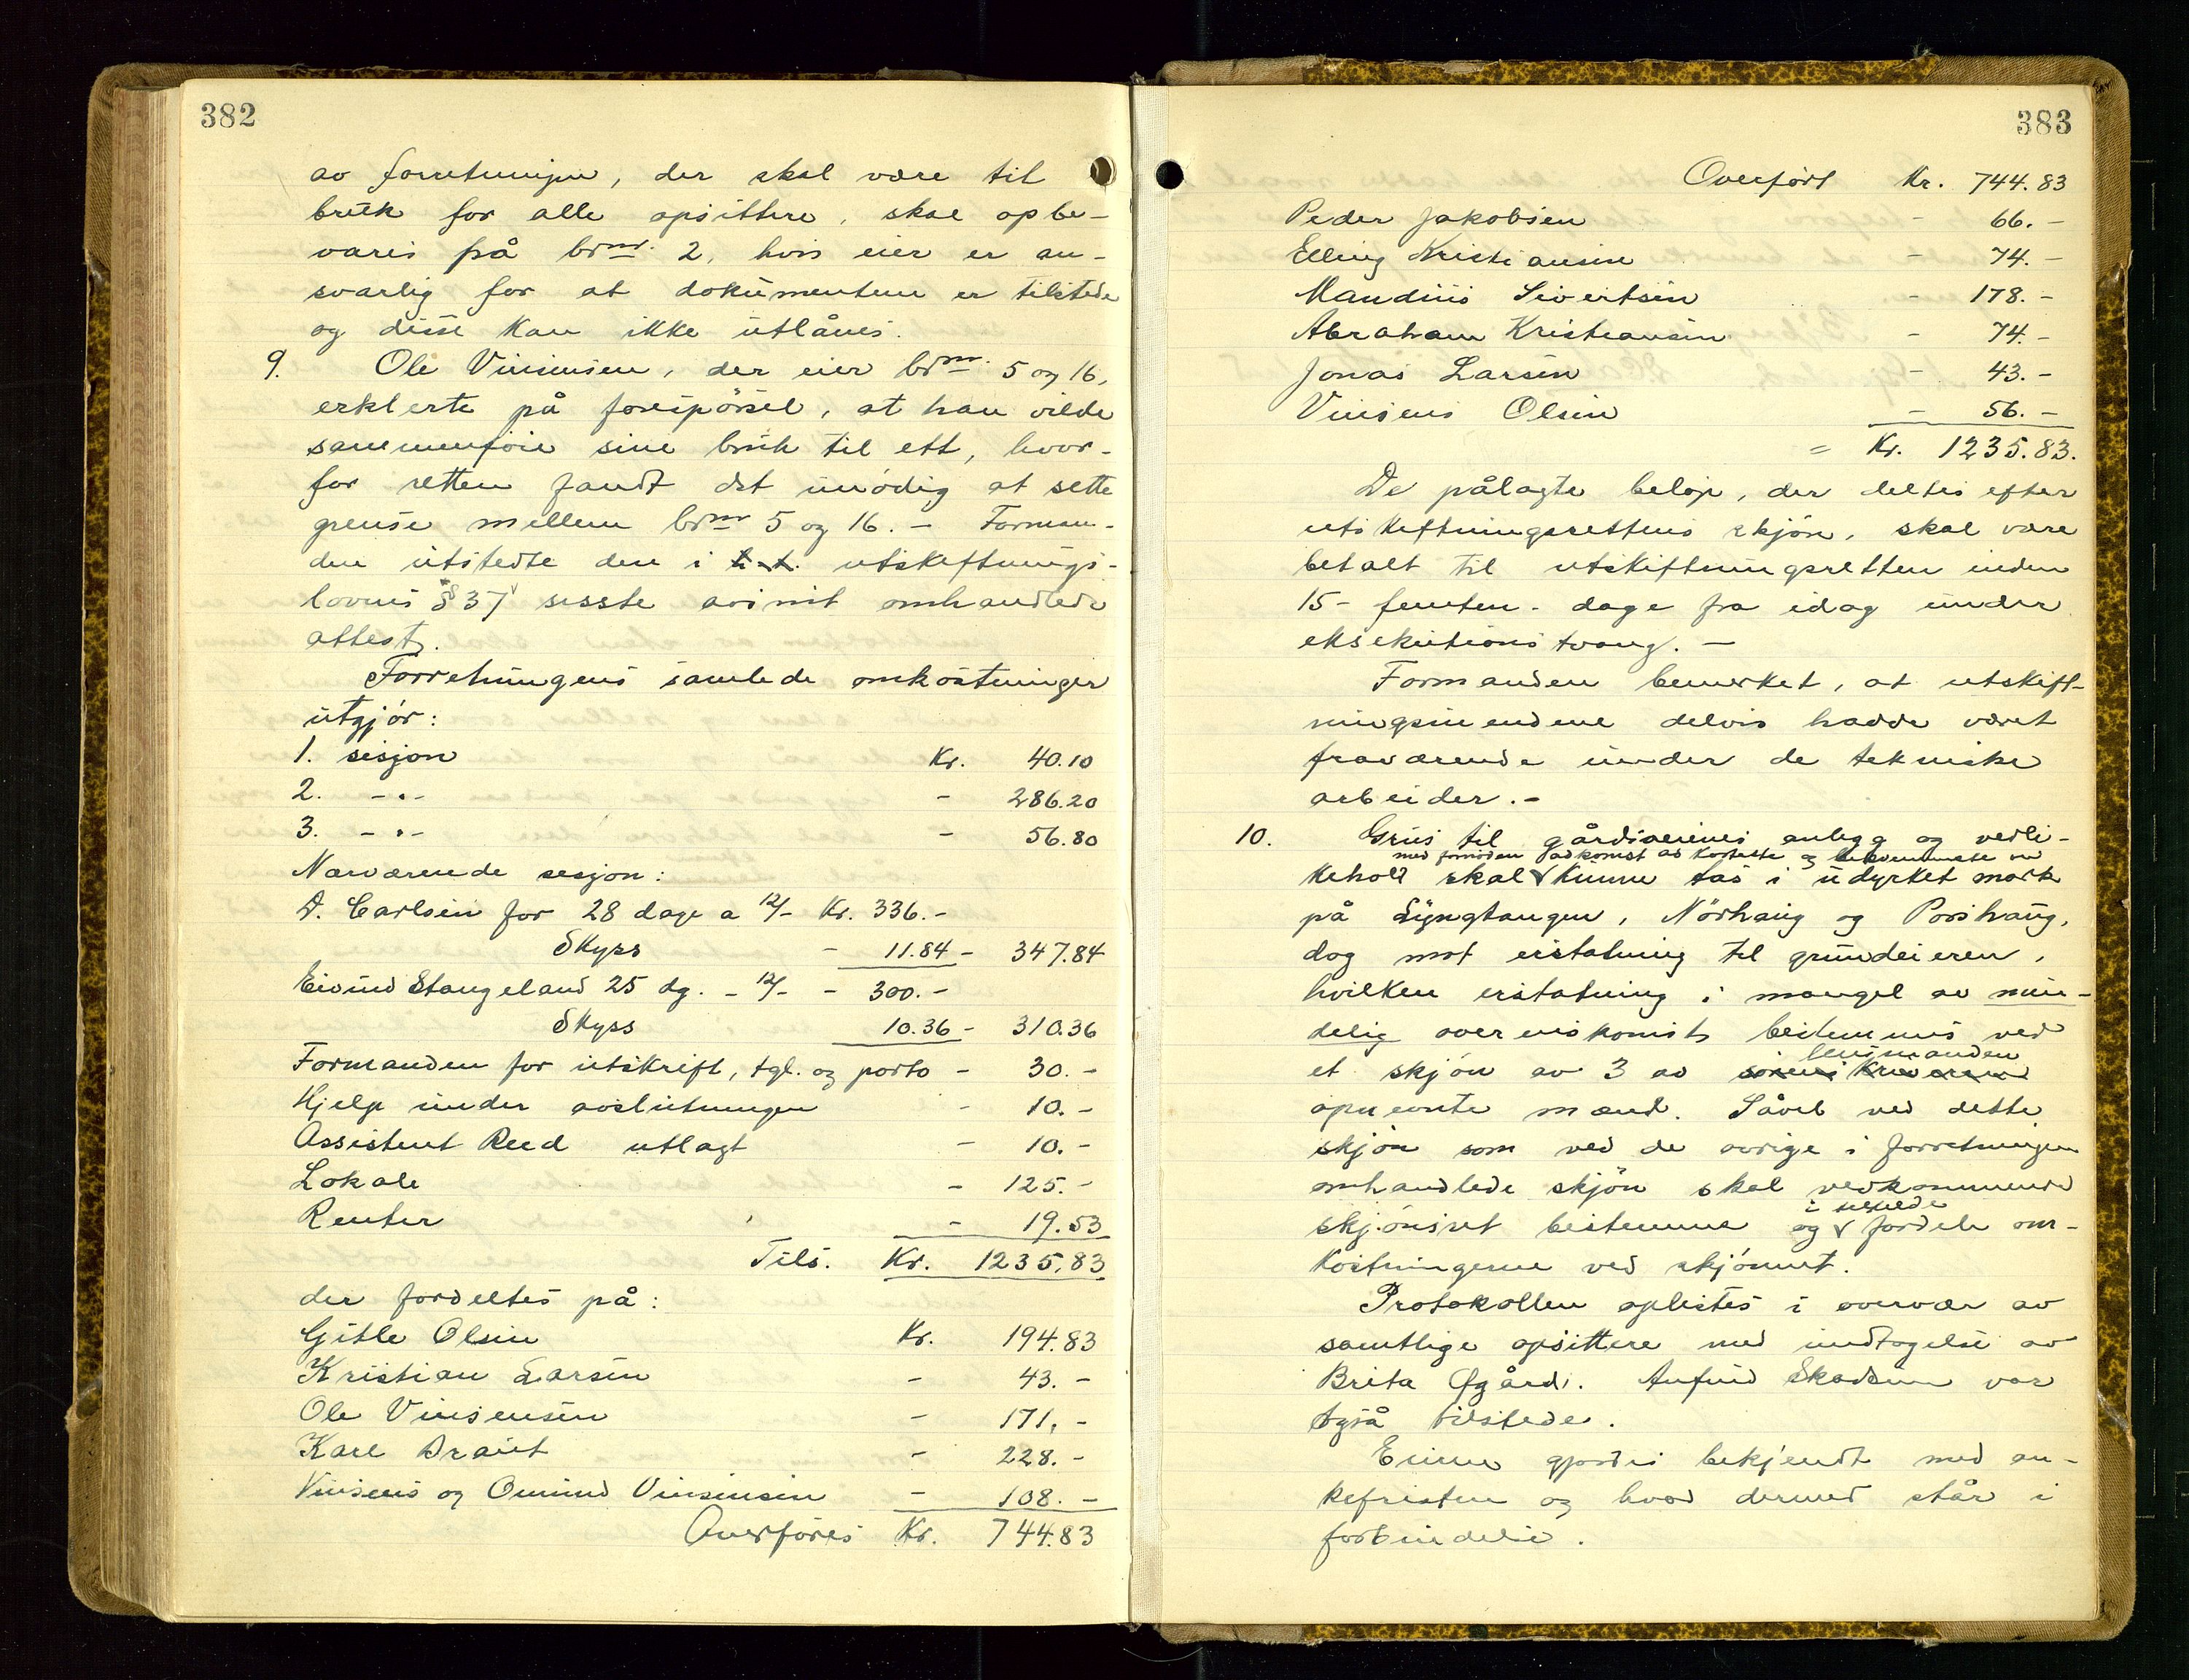 382
av forretningen, der skal være til
bruk for alle opsittere, skal opbe-
vares på brnr. 2, hvis eier er an-
svarlig for at dokumentene er tilstede
og disse kan ikke utlånes.
9. Ole Vinsensen, der eier brnr. 5 og 16,
erklerte på forespörsel, at han vilde
sammenföie sine bruk til ett, hvor-
for retten fandt det unödig at sette
grense mellem brnr 5 og 16. - Forman-
den utstedte den i utskiftnings-
lovens § 37 sisste avsnit omhandlede
attest.
Forretningens samlede omkostninger
utgjör:
1. sesjon Kr. 40.10
2. -"- - 286.20
3. -"- - 56.80
Nærværende sesjon:
D. Carlsen for 28 dage a 12/- Kr. 336.-
Skyss - 11.84 - 347.84
Eivind Stangeland 25 dg. - 12/- - 300.-
Skyss 10.36 - 310.36
Formanden for utskrift, tgl. og porto - 30.-
Hjelp under avslutningen - 10.-
Assistent Reed utlagt - 10.-
Lokale - 125.-
Renter - 19.53
Tils. Kr. 1235,83
der fordeltes på:
Gitle Olsen Kr. 194.83
Kristian Larsen - 43.-
Ole Vinsensen - 171,-
Karl Braut - 228.-
Vinsens og Omund Vinsensen - 108.-
Overföres Kr. 744.83
383
Overfört Kr. 744.83
Peder Jakobsen - 66.-
Elling Kristiansen - 74.-
Mandius Sivertsen - 178.-
Abraham Kristiansen - 74.-
Jonas Larsen - 43.-
Vinsens Olsen - 56.-
= Kr. 1235.83.
De pålagte belöp, der deltes efter
utskiftningsrettens skjön, skal være
betalt til utskiftningsretten inden
15- femten- dage fra idag under
eksekutions tvang. -
Formanden bemerket, at utskift-
ningsmendene delvis hadde været
fraværende under de tekniske
arbeider.-
10. Grus til gårdsveienes anlegg og vedli-
med fornöden adkomst ad korteste og bekvemmeste vei
kehold skal kunne tas i udyrket mark
på Lyngtangen, Nörhaug og Porshaug,
dog mot erstatning til grundeieren,
hvilken erstatning i mangel av min-
delig overenskomst bestemmes ved
lensmanden
et skjön av 3 av
opnevnte mænd. Såvel ved dette
skjön som ved de övrige i forretningen
omhandlede skjön skal vedkommende
i tilfelde
skjönsret bestemme og fordele om-
kostningerne ved skjönnet.
Protokollen oplestes i overvær av
samtlige opsittere med undtagelse av
Brita Øgård. Anfind Skadsem var
også tilstede.
Enhver gjordes bekjendt med an-
kefristen og hvad dermed står i
forbindelse.